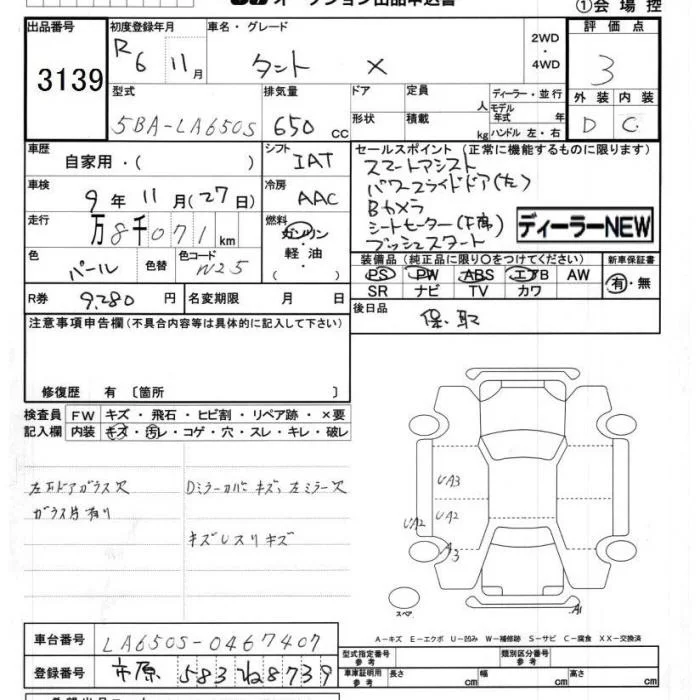 オークション出品申込書
①会場控
出品番号 3139
初度登録年月 R6 11月
車名・グレード タント X
2WD・4WD
評価点 3
外装 D 内装 C
型式 5BA-LA650S
排気量 650 cc
ドア 形状
定員 人
積載 kg
ディーラー・並行
モデル年式 年
ハンドル 左・右
車歴 自家用・( )
シフト IAT
セールスポイント (正常に機能するものに限ります)
スマートアシスト
パワースライドドア(左)
Bカメラ
シートヒーター(F席)
プッシュスタート
ディーラーNEW
車検 9年11月(27日)
冷房 AAC
走行 万8千071km
燃料 ガソリン・軽油
色 パール 色替 色コード W25
装備品 (純正品に限り○をつけてください)
PS PW ABS エアB AW
SR ナビ TV カワ
新車保証書 有・無
R券 9,280円 名変期限 月 日
後日品 保、取
注意事項申告欄(不具合内容等は具体的に記入して下さい)
修復歴 有 〔箇所 〕
検査員記入欄
FW キズ・飛石・ヒビ割・リペア跡・×要
内装 キズ・汚レ・コゲ・穴・スレ・キレ・破レ
左Fドアガラス欠
ガラス片有り
Dミラーカバーキズ、左ミラー欠
キズレスリキズ
UA3
UA2
UA2
A3
A1
スペア
A-キズ E-エクボ U-凹み W-補修跡 S-サビ C-腐食 XX-交換済
車台番号 LA650S-0467407
登録番号 市原 583 ね8739
型式指定番号 参考
類別区分番号 参考
車庫証明用 参考 長さ cm 幅 cm 高さ cm